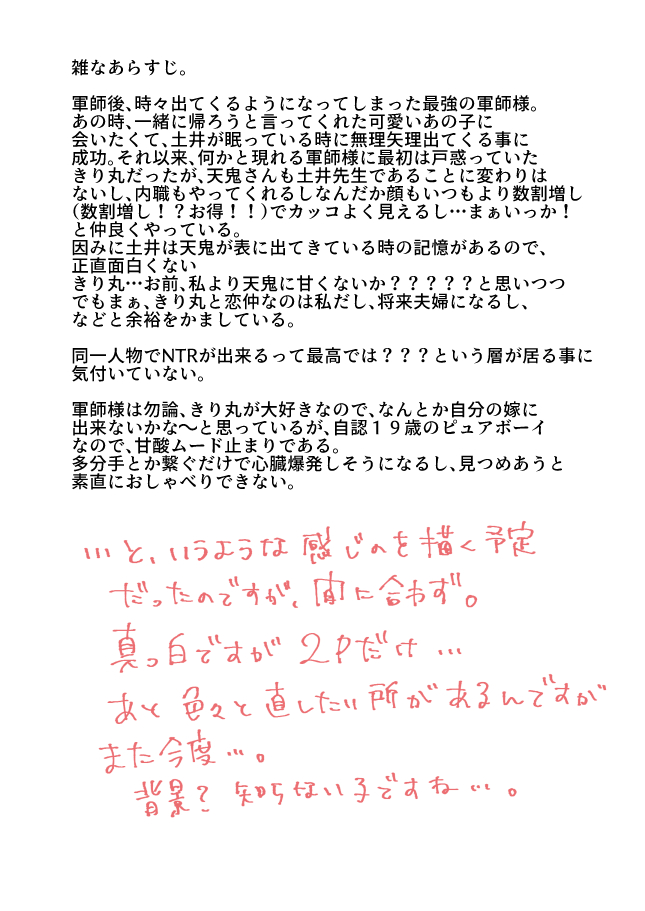 雑なあらすじ。
軍師後、時々出てくるようになってしまった最強の軍師様。
あの時、一緒に帰ろうと言ってくれた可愛いあの子に
会いたくて、土井が眠っている時に無理矢理出てくる事に
成功。それ以来、何かと現れる軍師様に最初は戸惑っていた
きり丸だったが、天鬼さんも土井先生であることに変わりは
ないし、内職もやってくれるしなんだか顔もいつもより数割増し
(数割増し！？お得！！)でカッコよく見えるし…まぁいっか！
と仲良くやっている。
因みに土井は天鬼が表に出てきている時の記憶があるので、
正直面白くない
きり丸…お前、私より天鬼に甘くないか？？？？？と思いつつ
でもまぁ、きり丸と恋仲なのは私だし、将来夫婦になるし、
などと余裕をかましている。
同一人物でNTRが出来るって最高では？？？という層が居る事に
気付いていない。
軍師様は勿論、きり丸が大好きなので、なんとか自分の嫁に
出来ないかな～と思っているが、自認１９歳のピュアボーイ
なので、甘酸ムード止まりである。
多分手とか繋ぐだけで心臓爆発しそうになるし、見つめあうと
素直におしゃべりできない。
…と、いうような感じのを描く予定
だったのですが、間に合わず。
真っ白ですが2Pだけ…
あと色々と直したい所があるんですが
また今度…。
背景？知らない子ですね…。